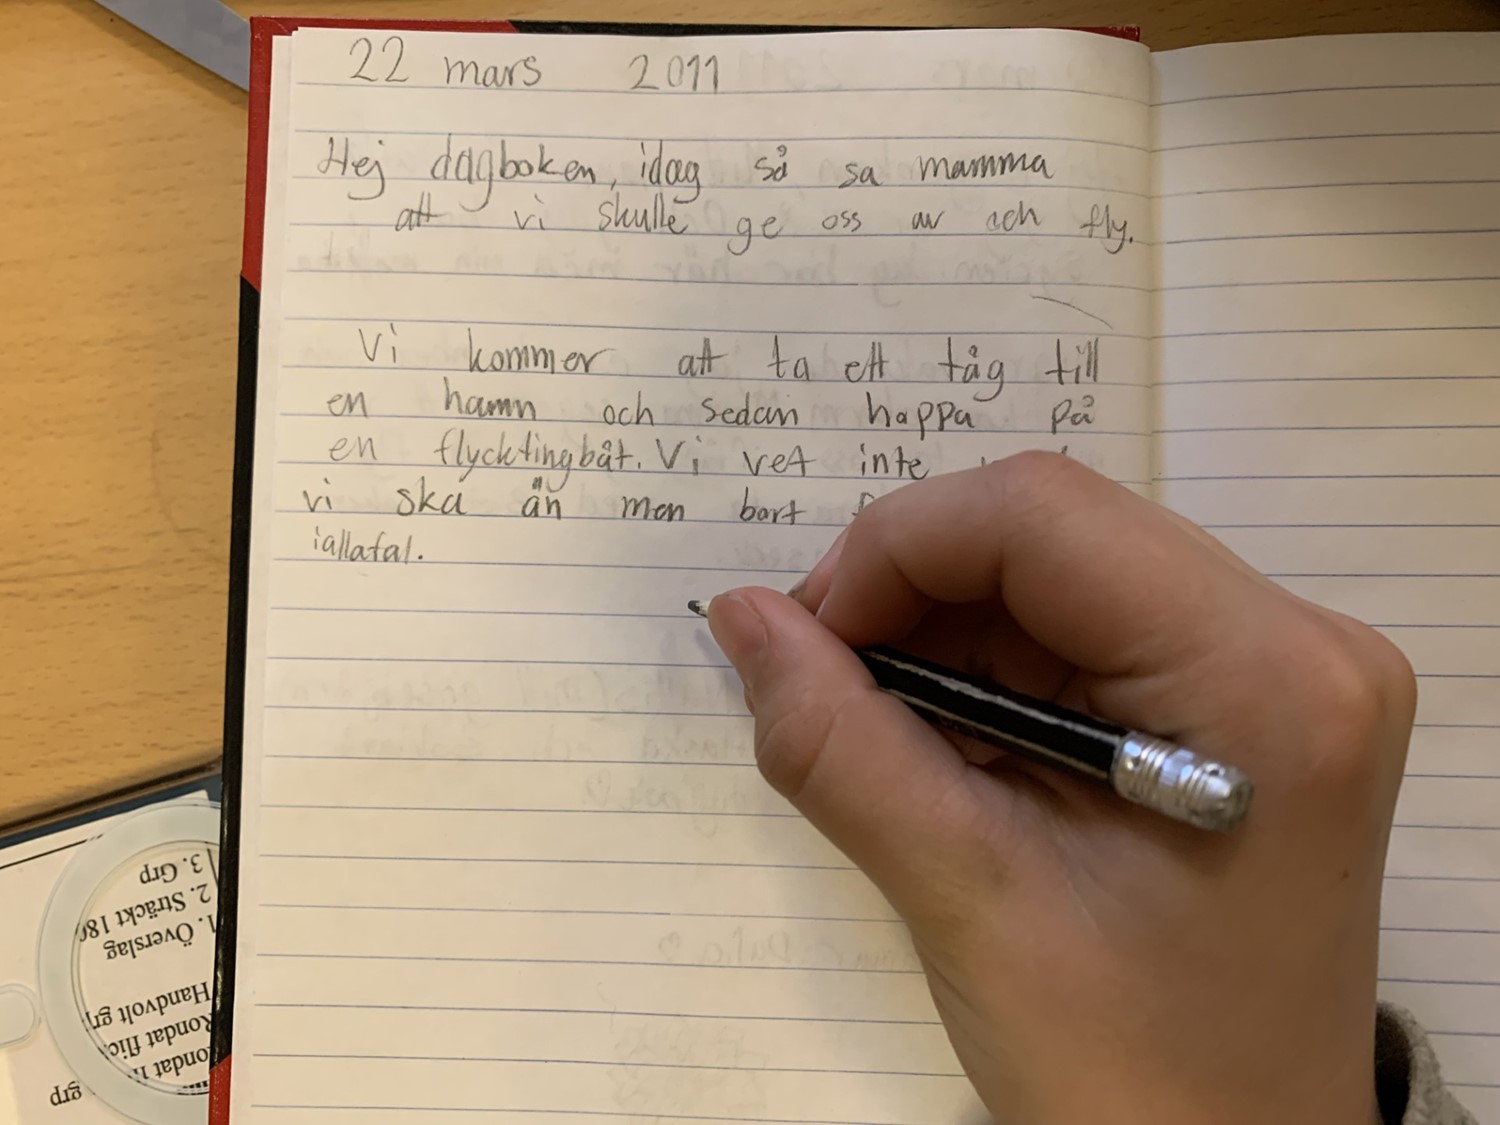 22 mars 2011
Hej dagboken, idag så sa mamma
att vi skulle ge oss av och fly.
Vi kommer att ta ett tåg till
en hamn och sedan hoppa på
en flycktingbåt. Vi vet inte
vi ska än men bort
iallafal.
3. Grp
2. Sträckt
1. Överslag
Handvolt grp
Rondat flic
grp